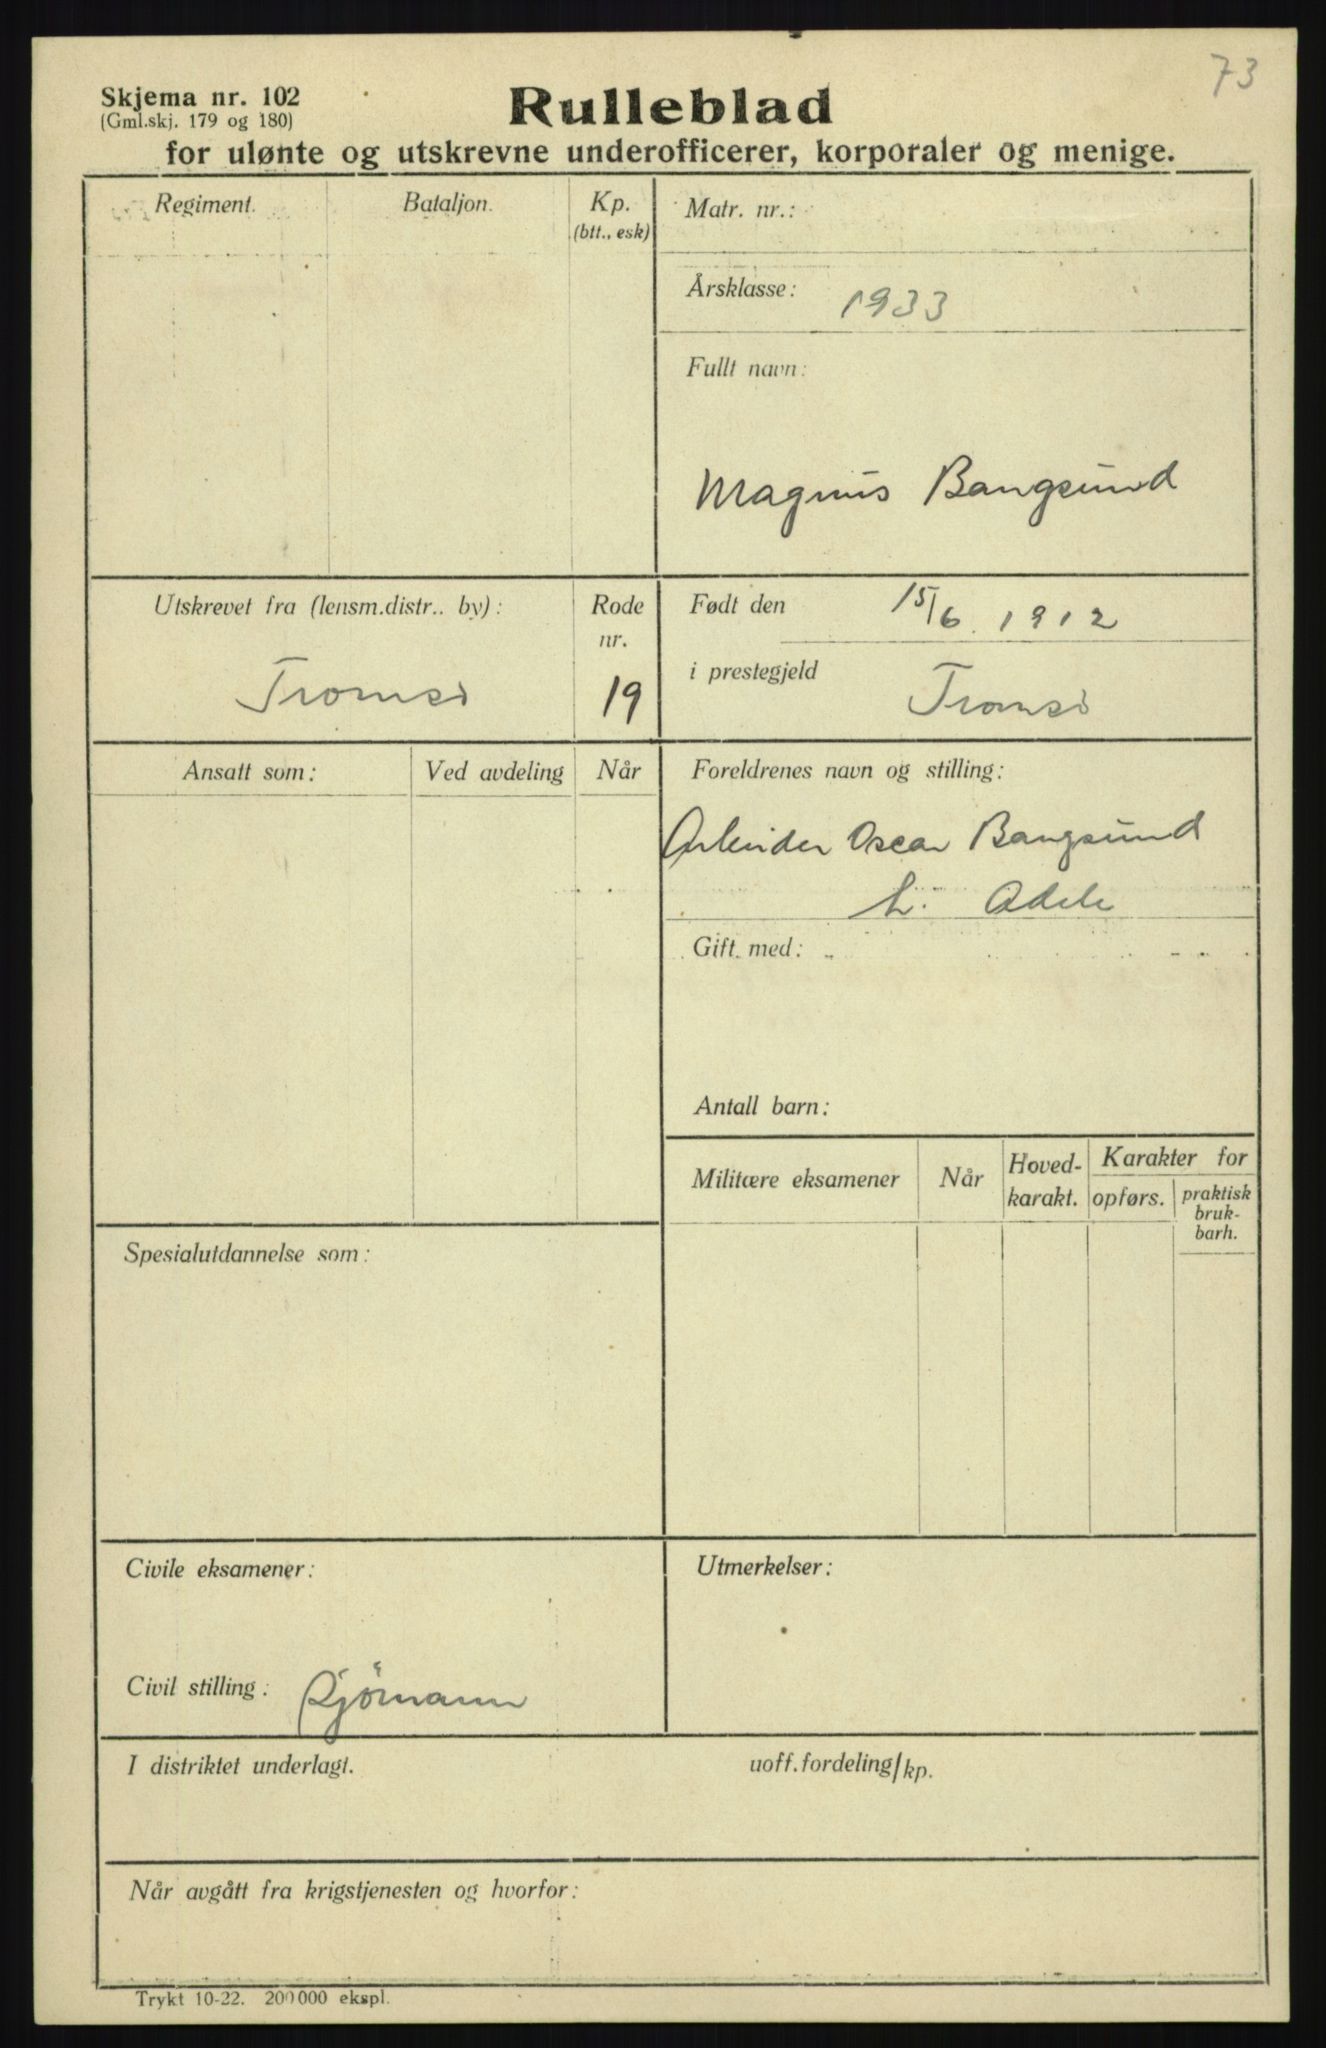 73
Skjema nr. 102
(Gml.skj. 179 og 180)
Rulleblad
for ulønte og utskrevne underofficerer, korporaler og menige.
Regiment.
Bataljon.
Kp.
(btt., esk)
Matr. nr.:
Årsklasse: 1933
Fullt navn:
Magnus Bangsund
Utskrevet fra (lensm.distr.. by):
Tromsö
Rode
nr.
19
Født den 15/6 1912
i prestegjeld Tromsö
Ansatt som:
Ved avdeling
Når
Foreldrenes navn og stilling:
Arbeider Oscar Bangsund
h. Adele
Gift. med:
Antall barn:
Militære eksamener
Når
Hoved-
karakt.
Karakter for
opførs.
praktisk
bruk-
barh.
Spesialutdannelse som:
Civile eksamener:
Utmerkelser:
Civil stilling: Sjömann
I distriktet underlagt.
uoff.fordeling/kp.
Når avgått fra krigstjenesten og hvorfor:
Trykt 10-22. 200000 ekspl.